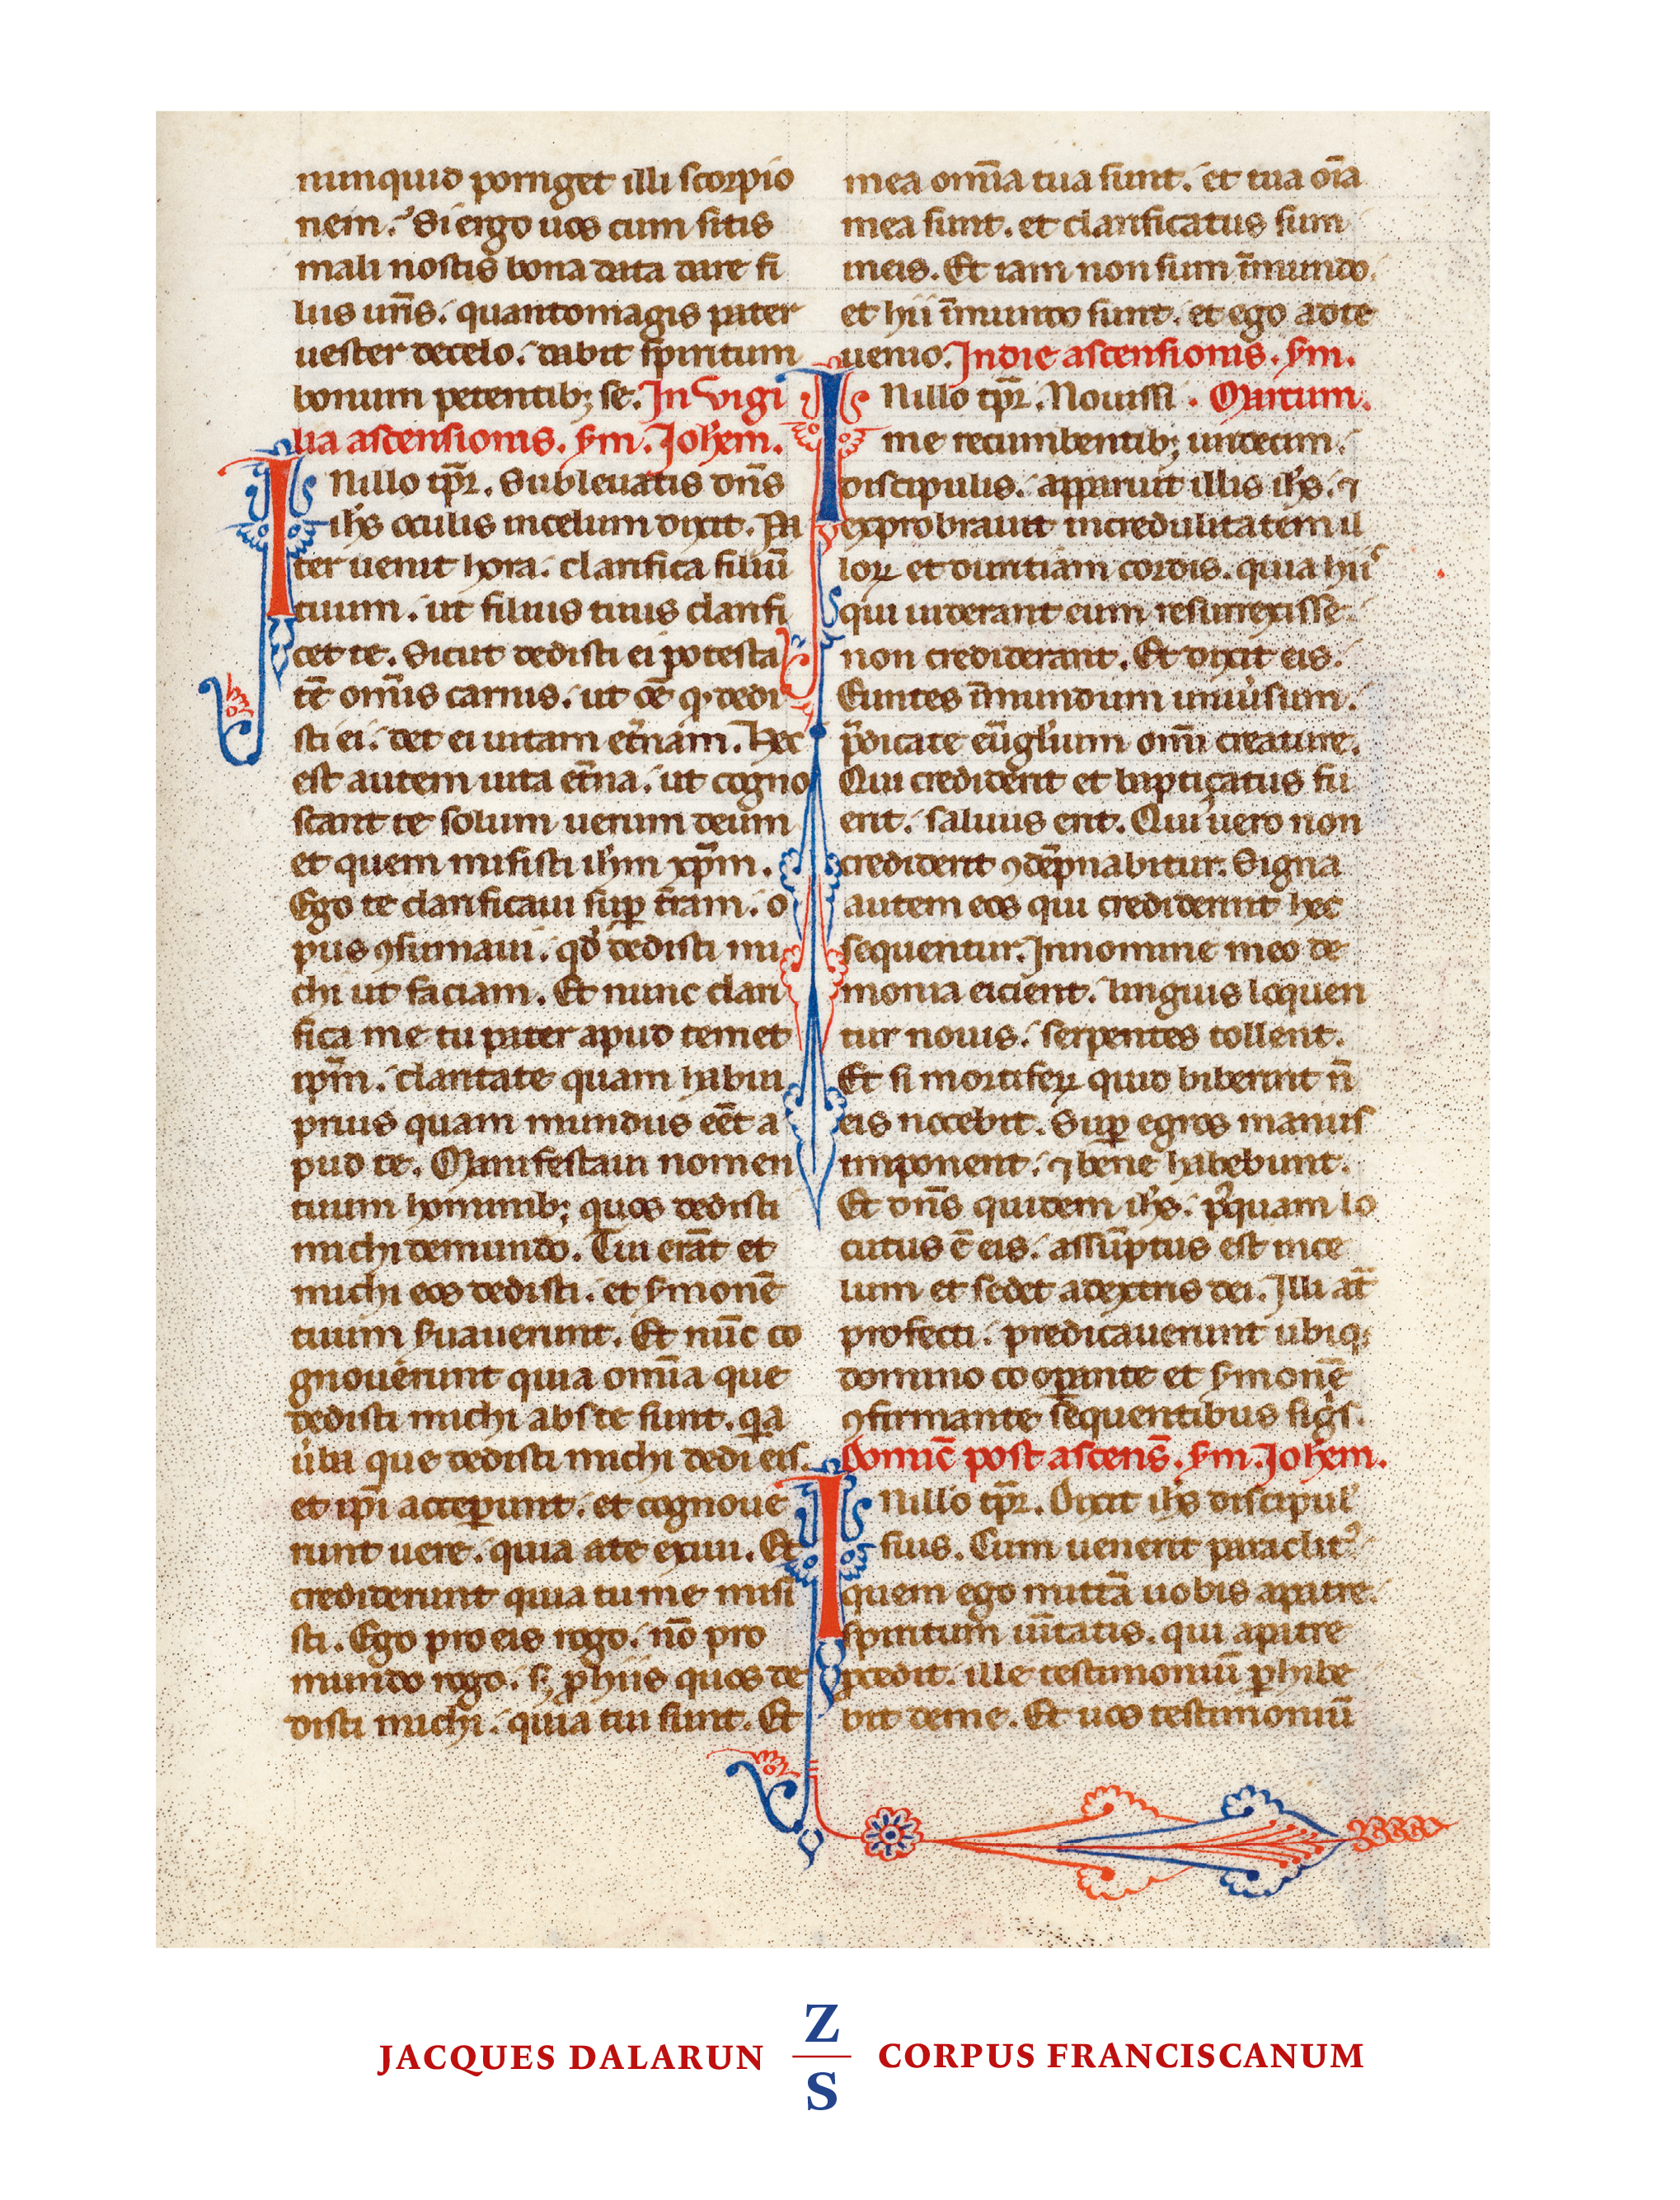 nunquid porriget illi scorpio
nem. Si ergo uos cum sitis
mali nostis bona data dare fi
liis ur̄is. quantomagis pater
uester decelo. dabit spiritum
bonum petentib; se. In vigi
lia ascensionis. s̄m. Joh̄em.
INillo tp̄r. Subleuatis dn̄s
ih̄s oculis incelum dixit. Pa
ter uenit hora. clarifica filiū
tuum. ut filius tuus clarifi
cet te. Sicut dedisti ei potesta
tē om̄is carnis. ut oē q̄ dedi
sti ei. det ei uitam et̄nam. Hec
est autem uita et̄na. ut cogno
scant te solum uerum deum
et quem misisti ih̄m xp̄m.
Ego te clarificaui suꝑ t̄ram. o
pus ꝯsumaui. qd̄ dedisti mi
chi ut faciam. Et nunc clari
fica me tu pater apud temet
ip̄m. claritate quam habui
prius quam mundus eēt a
pud te. Manifestaui nomen
tuum hominib; quos dedisti
michi demundo. Tui erāt et
michi eos dedisti. et s̄monē
tuum s̄uauerunt. Et nūc co
gnouerunt quia om̄ia que
dedisti michi abste sunt. qa
u̇ba que dedisti michi dedi eis.
et ip̄i acceꝑunt. et cognoue
runt uere. quia ate exiui. Et
crediderunt quia tu me misi
sti. Ego pro eis rogo. nō pro
mundo rogo. sꝫ ꝓ hiis quos de
disti michi. quia tui sunt. Et
mea om̄ia tua sunt. et tua oīa
mea sunt. et clarificatus sum
ineis. Et iam non sum īmundo.
et hii īmundo sunt. et ego adte
uenio. Indie ascensionis. s̄m.
INillo tp̄r. Nouissi . Marcum.
me recumbentib; undecim.
discipulis. apparuit illis ih̄s. ⁊
exprobrauit incredulitatem il
loꝝ et duritiam cordis. quia hiis
qui uiderant eum resurrexisse
non crediderant. Et dixit eis.
Euntes īmundum uniu̇sum.
p̄dicate eūgl̄ium om̄i creature.
Qui crediderit et baptiçatus fu
erit. saluus erit. Qui uero non
crediderit ꝯdēpnabitur. Signa
autem eos qui crediderint hec
sequentur. Innomine meo de
monia eicient. linguis loquen
tur nouis. serpentes tollent.
Et si mortiferꝝ quid biberint n̄
eis nocebit. Suꝑ egros manus
imponent. ⁊ bene habebunt.
Et dn̄s quidem ih̄s. p᷒quam lo
cutus ē eis. assūptus est ince
lum et sedet adextris dei. Illi at̄
profecti. predicauerunt ubiqꝫ
domino cooꝑante et s̄monē
ꝯfirmante sequentibus sigis.
Domīc̄ post ascens̄. s̄m. Joh̄em.
INillo tp̄r. Dixit ih̄s discipul'
suis. Cum uenerit paraclit᷒
quem ego mittā uobis apatre.
spiritum uīt̄atis. qui apatre
ꝓcedit. ille testimoniū ꝑhibe
bit deme. Et uos testimoniū
JACQUES DALARUN
Z
S
CORPUS FRANCISCANUM